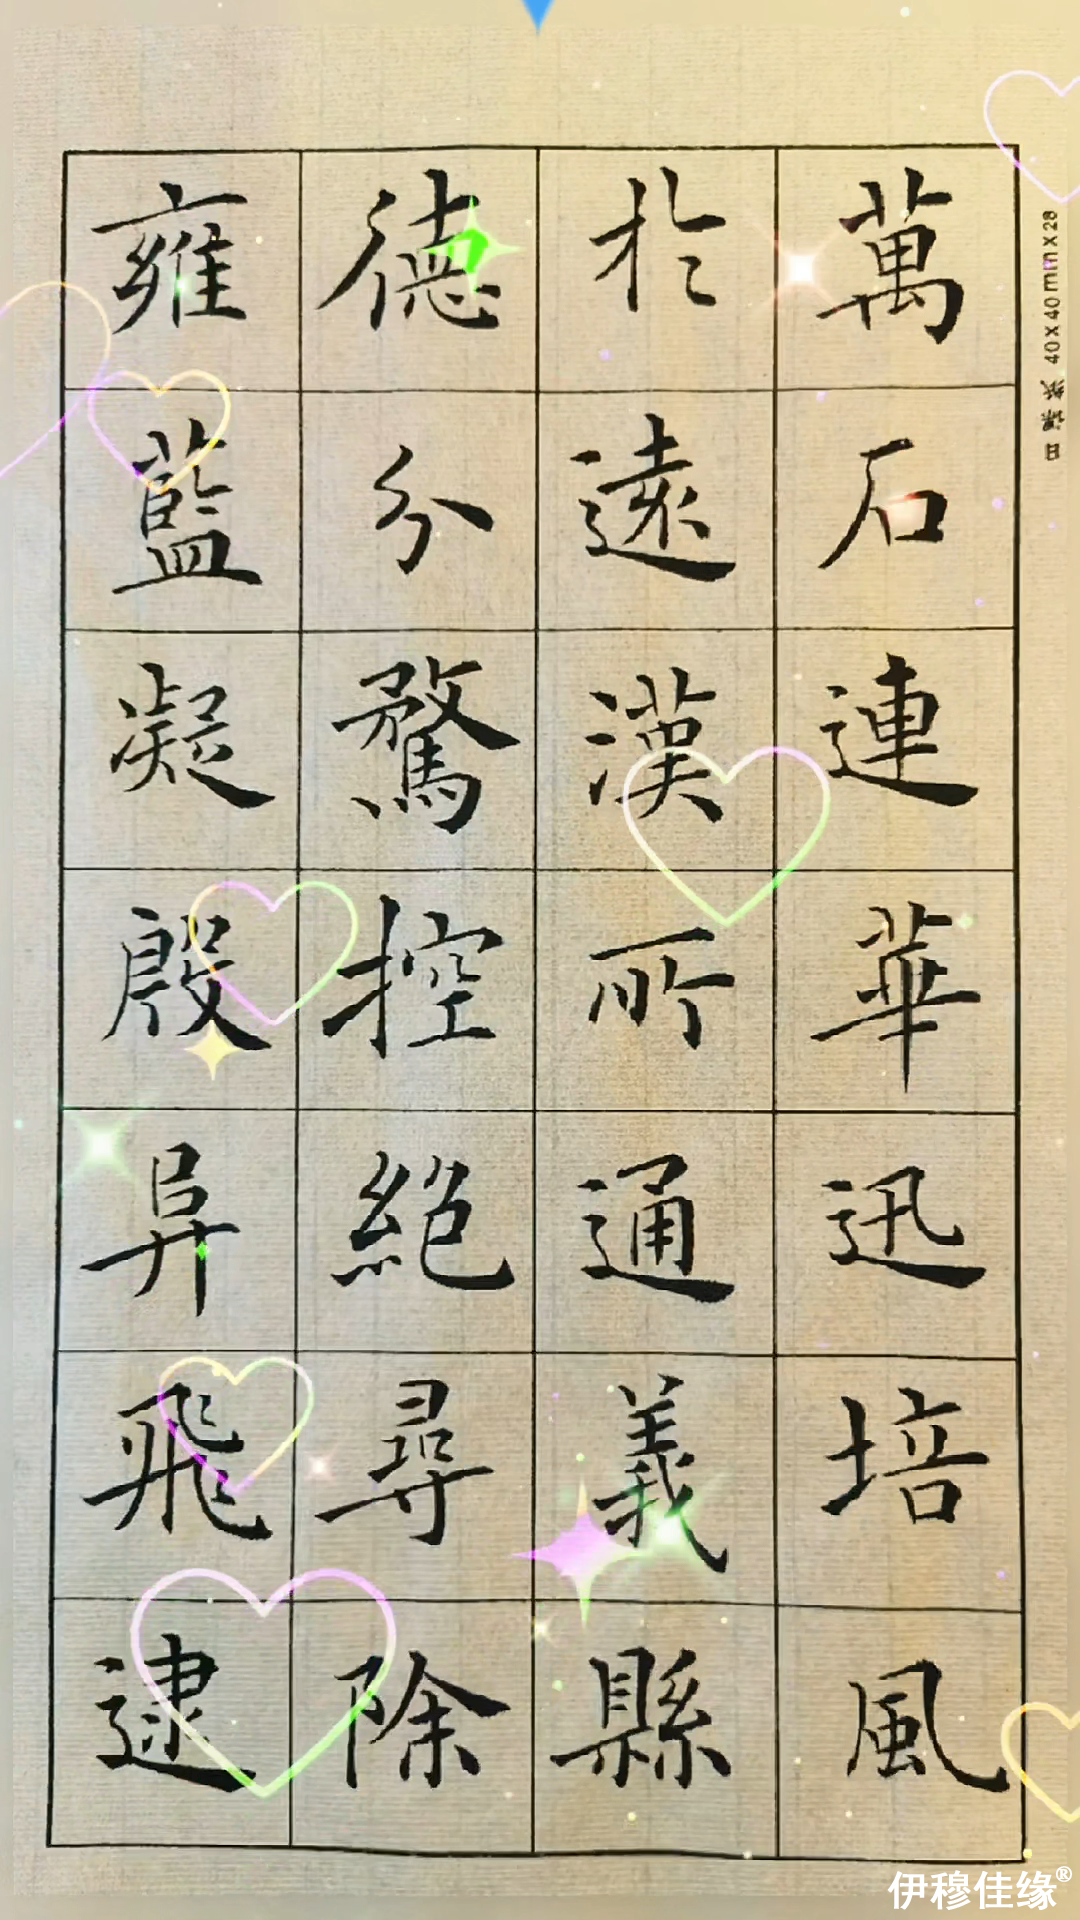 萬石連華迅培風
於遠漢所通義縣
德分騖控絕尋除
雍藍凝殷异飛逮
日課紙 40x40minx28
伊穆佳缘®